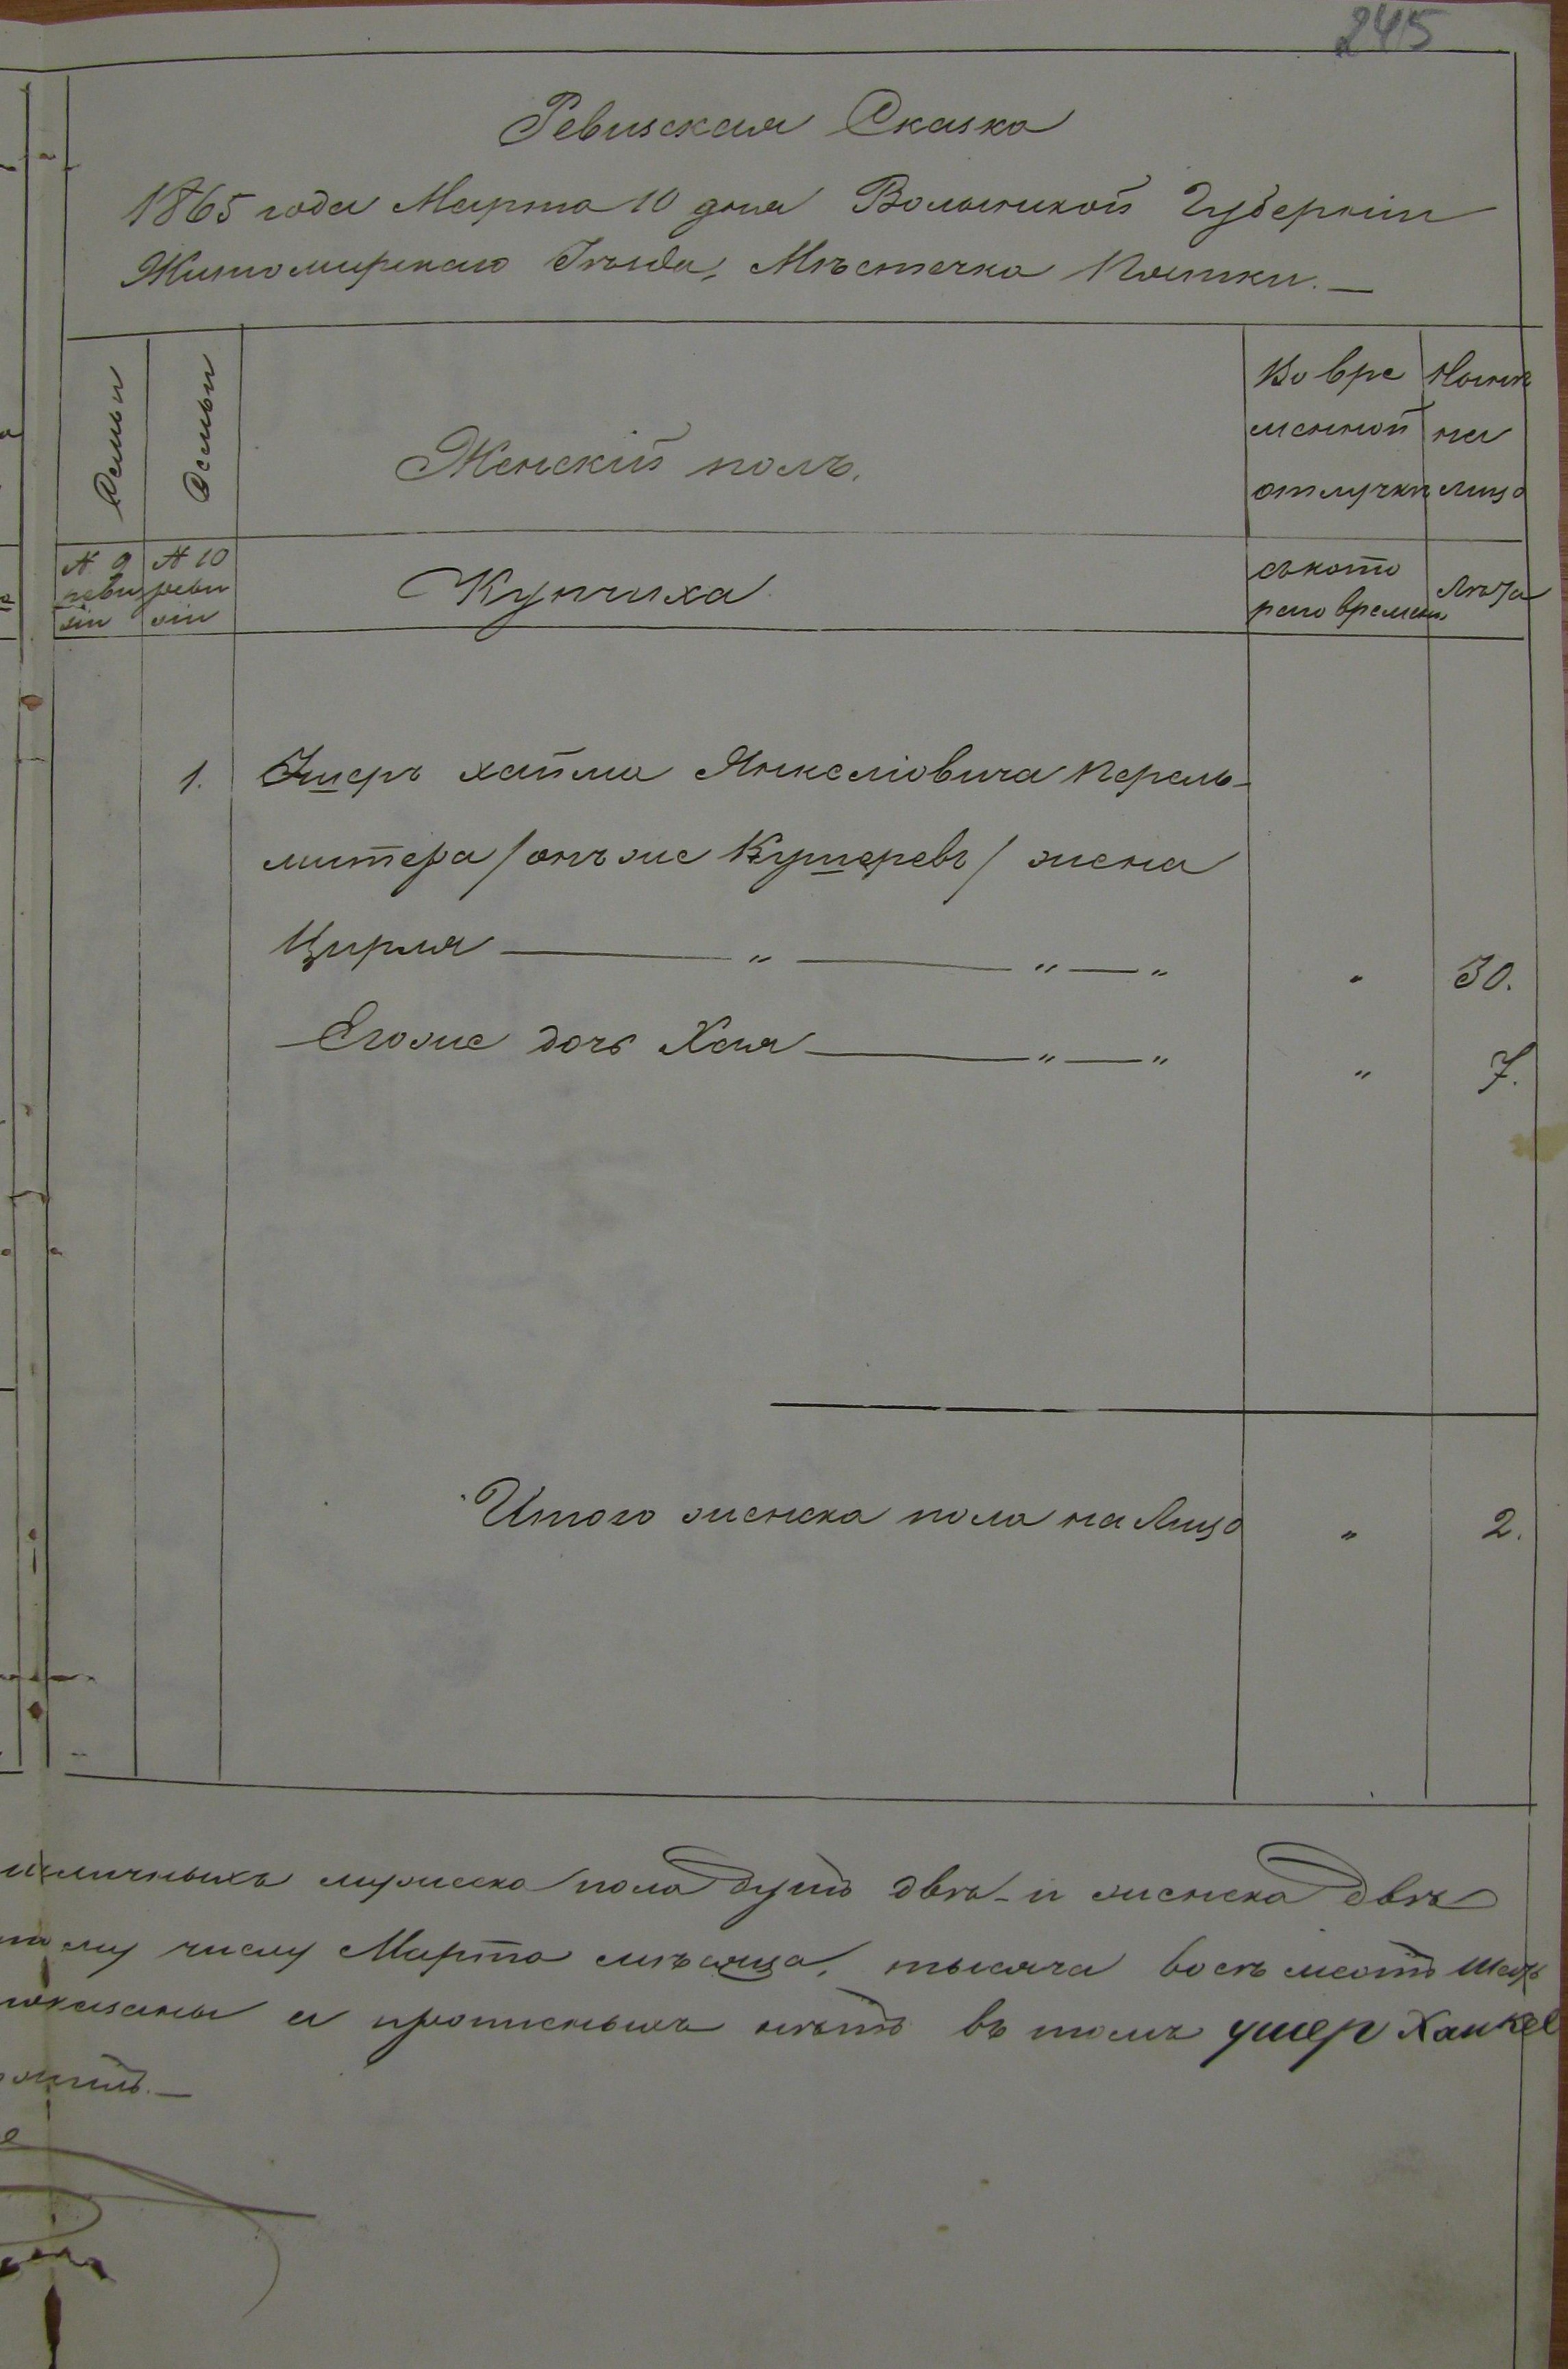 245
Ревизская Сказка
1865 года Марта 10 дня Волынской Губерніи
Житомирскаго Уѣзда, Мѣстечка Пятки.
Семьи
Семьи
Женскій полъ.
Во вре
менной
отлучкѣ
Нынѣ
на
лицо
№ 9
реви
зіи
№ 10
реви
зіи
Купчиха
съ кото
раго времени
Лѣта
1. Ушеръ хайма Янкеліовича Перель-
митера / онъ же Кушеревъ / жена
Цирля — " — " — " " 30.
Его же дочь Хая — " — " " 7.
Итого женска пола на Лицо " 2.
наличныхъ мужеска пола душъ двѣ и женска двѣ
числу Марта мѣсяца, тысяча восемьсотъ
показаны а прописныхъ нѣтъ въ томъ ушер